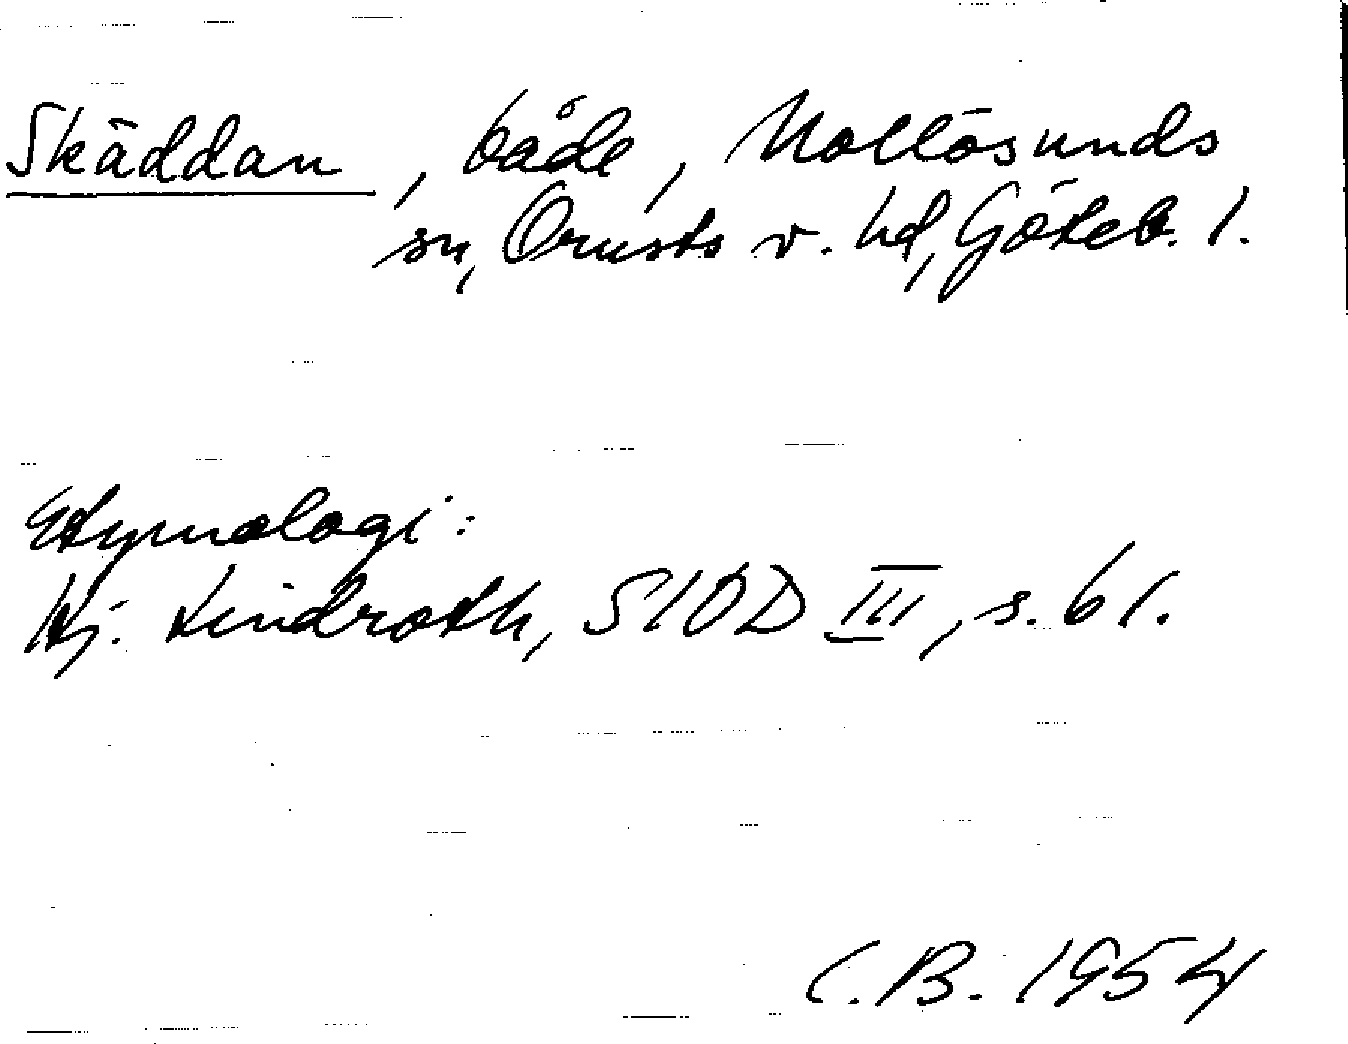 Skäddan, både, Mollösunds
sn, Orusts v. hd, Göteb. l.
Etymologi:
Hj. Lindroth, SIOD III, s. 61.
C.B. 1954